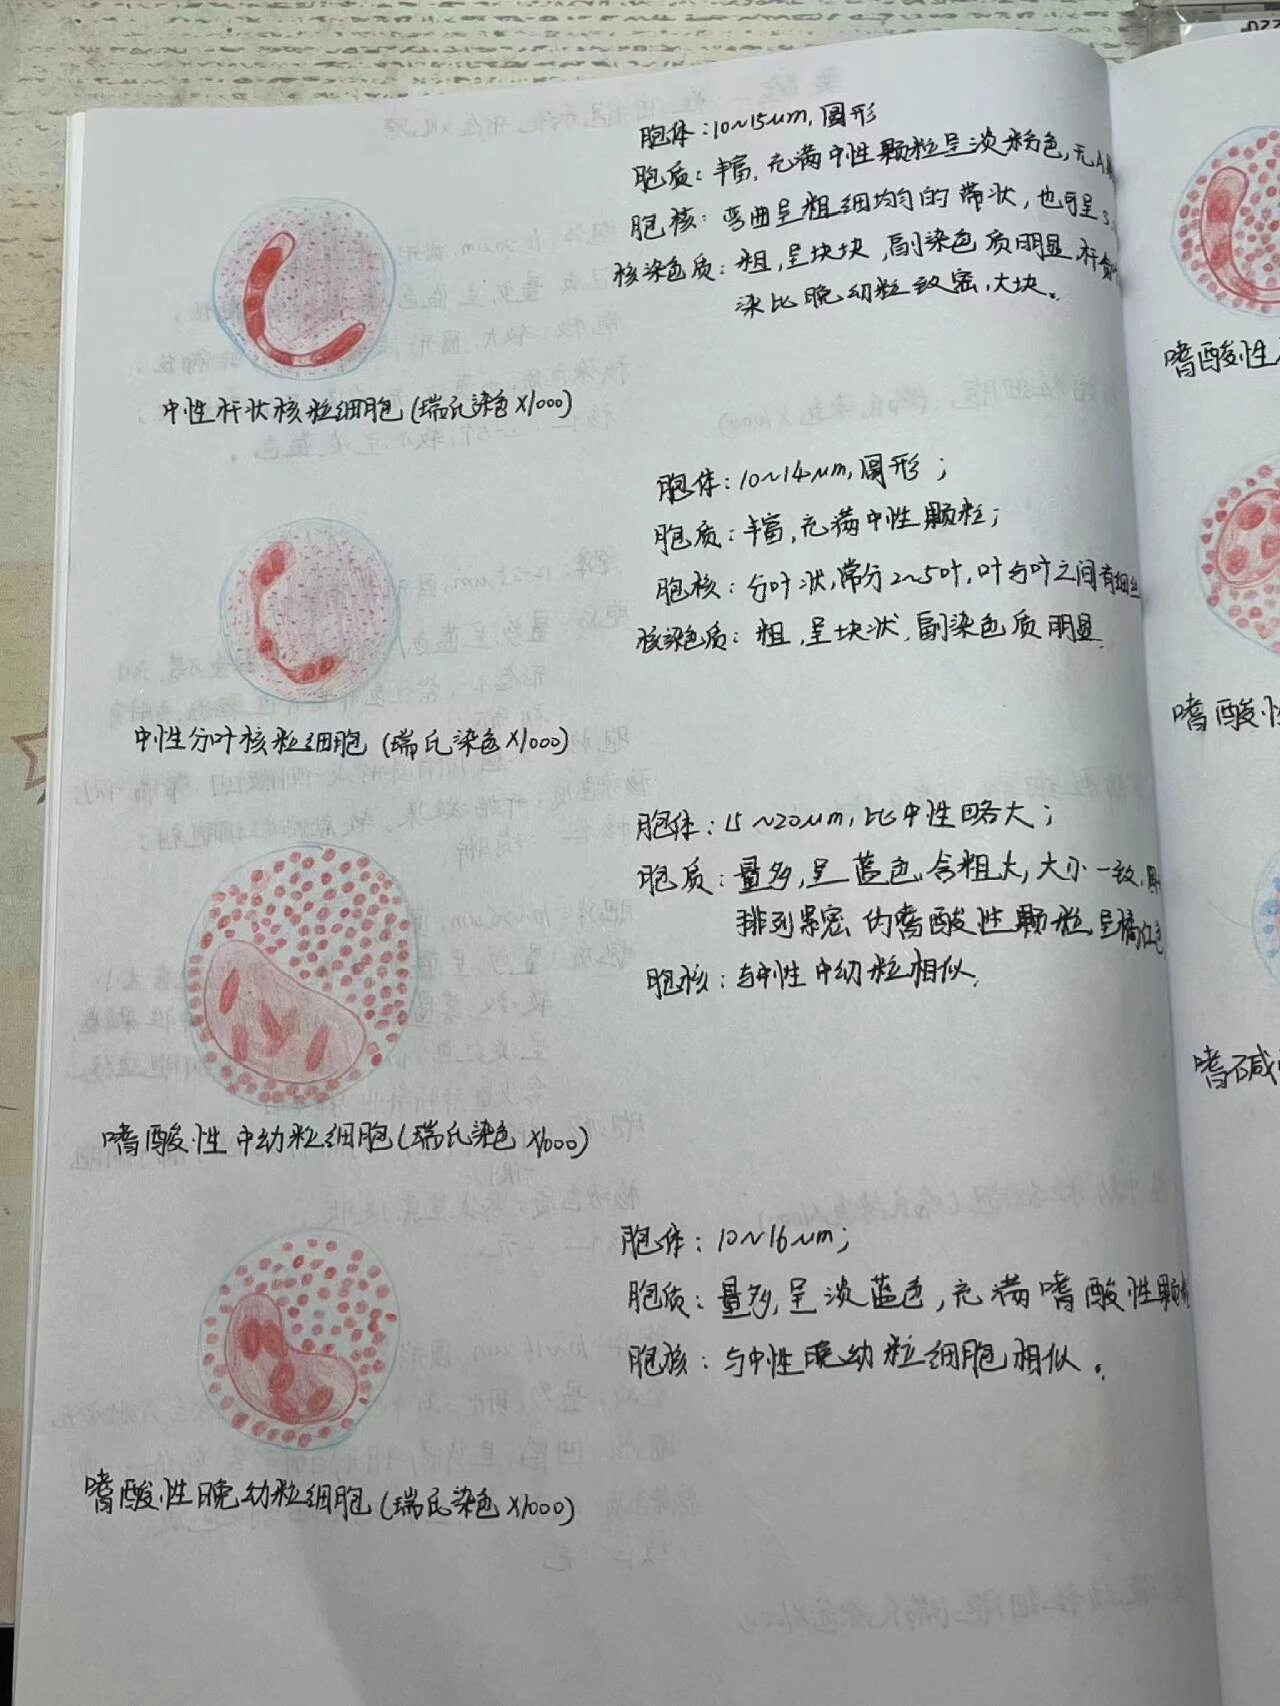 胞体：10~15μm，圆形
胞质：丰富，充满中性颗粒呈淡粉色，无A
胞核：弯曲呈粗细均匀的带状，也可呈S
核染色质：粗，呈块块，副染色质明显，杆
染比晚幼粒致密，大块。
中性杆状核粒细胞(瑞氏染色×1000)
胞体：10~14μm，圆形；
胞质：丰富，充满中性颗粒；
胞核：分叶状，常分2~5叶，叶与叶之间有细丝
核染色质：粗，呈块状，副染色质明显
中性分叶核粒细胞(瑞氏染色×1000)
胞体：15~20μm，比中性略大；
胞质：量多，呈蓝色，含粗大，大小一致，
排列紧密的嗜酸性颗粒，呈橘红色
胞核：与中性中幼粒相似.
嗜酸性中幼粒细胞(瑞氏染色×1000)
胞体：10~16μm；
胞质：量多，呈淡蓝色，充满嗜酸性颗粒
胞核：与中性晚幼粒细胞相似。
嗜酸性晚幼粒细胞(瑞氏染色×1000)
嗜酸性
嗜酸性
嗜碱